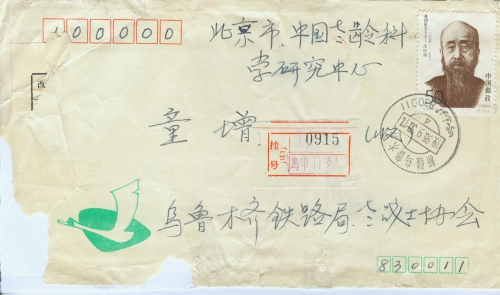 100000
北京市.中国老龄科
学研究中心
童增 收
挂号
0915
50
中国邮政
改
乌鲁木齐铁路局老战士协会
830011